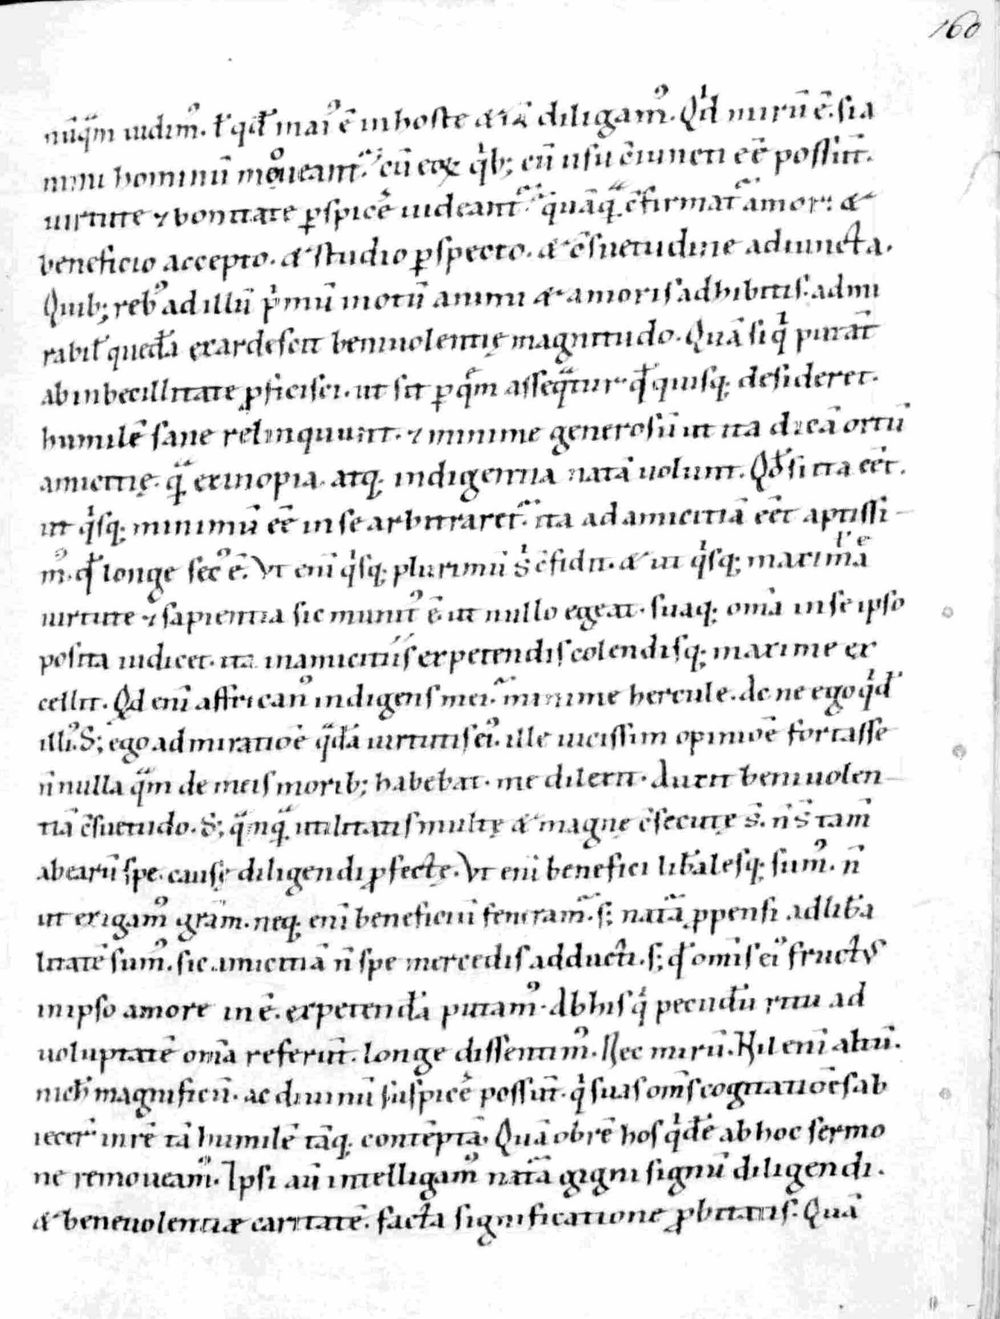 160
nūq̄m uidim᾽. ł qđ mai᾽ ē in hoste &iā diligam᾽. Qd̾ mirū ē. si a
nimi hominū moueant᷑. cū eoꝝ q̾b; cū usu c̄iuncti eē possūt.
uirtute ⁊ bonitate ꝑspicē uideant᷑. q̾uāq̄ c̄firmat᷑ amor: &
beneficio accepto. & studio ꝑspecto. & c̄suetudine adiuncta.
Quib; reb᾽ ad illū p̾mū motū animi & amoris adhibitis. admi
rabił quedā exardescit beniuolentię magnitudo. Quā si q̾ putāt
ab inbecillitate ꝓficisci. ut sit ꝑ q̄m asseq̄tur q̄đ quisq; desideret.
humilē sane relinquunt. ⁊ minime generosū ut ita dicā ortū
amicitię. q̄ ex inopia. atq; indigentia natā uolunt. Qđ si ita eēt.
ut q̾sq; minimū eē in se arbitraret᷑. ita ad amicitiā eēt aptissi
m᾽. qđ longe sec᾽ ē. Vt eni q̾sq; plurimū s̾ c̄fidit. & ut q̾sq; maxima
uirtute ⁊ sapientia sic munit᾽ ē ut nullo egeat. suaq; om̄a in se ipso
posita iudicet. ita in amicitiis expetendis colendisq; maxime ex
cellit. Qd enī affrican᾽ indigens mei. minime hercule. ac ne ego q̾đ
illi᾽. S; ego admiratiōē q̄dā uirtutis ei᾽. ille uicissim opiniōē fortasse
n̄ nulla q̄m de meis morib; habebat. me dilexit. Auxit beniuolen
tiā c̄suetudo. S; q̄mq̄ utilitatis multę & magnę c̄secutę s̄. n̄ s̄ tam̄
ab earū spe. causę diligendi ꝓfectę. Vt enī benefici liƀalesq; sum᾽. n̄
ut exigam᾽ grām. neq; enī beneficiū feneram᷑. s; natā ꝓpensi ad liƀa
litatē sum᾽. sic amicitiā n̄ spe mercedis adducti. s; qđ omīs ei᾽ fruct᾽
in ipso amore inē. expetendā putam᾽. Ab his q̾ pecudū ritu ad
uoluptatē om̄a referūt. longe dissentim᾽. Nec mirū. Nil enī altū.
nich̄ magnificū. ac diuinū suspicē possūt. q̾ suas om̄s cogitatiōēs ab
iecer̄ in rē tā humilē tāq; contēptā. Quā obrē hos q̾dē ab hoc sermo
ne remoueam᾽. Ipsi aū intelligam᾽ natā gigni signū diligendi.
& beneuolentiæ caritatē. facta significatione ꝓbitatis. Quā